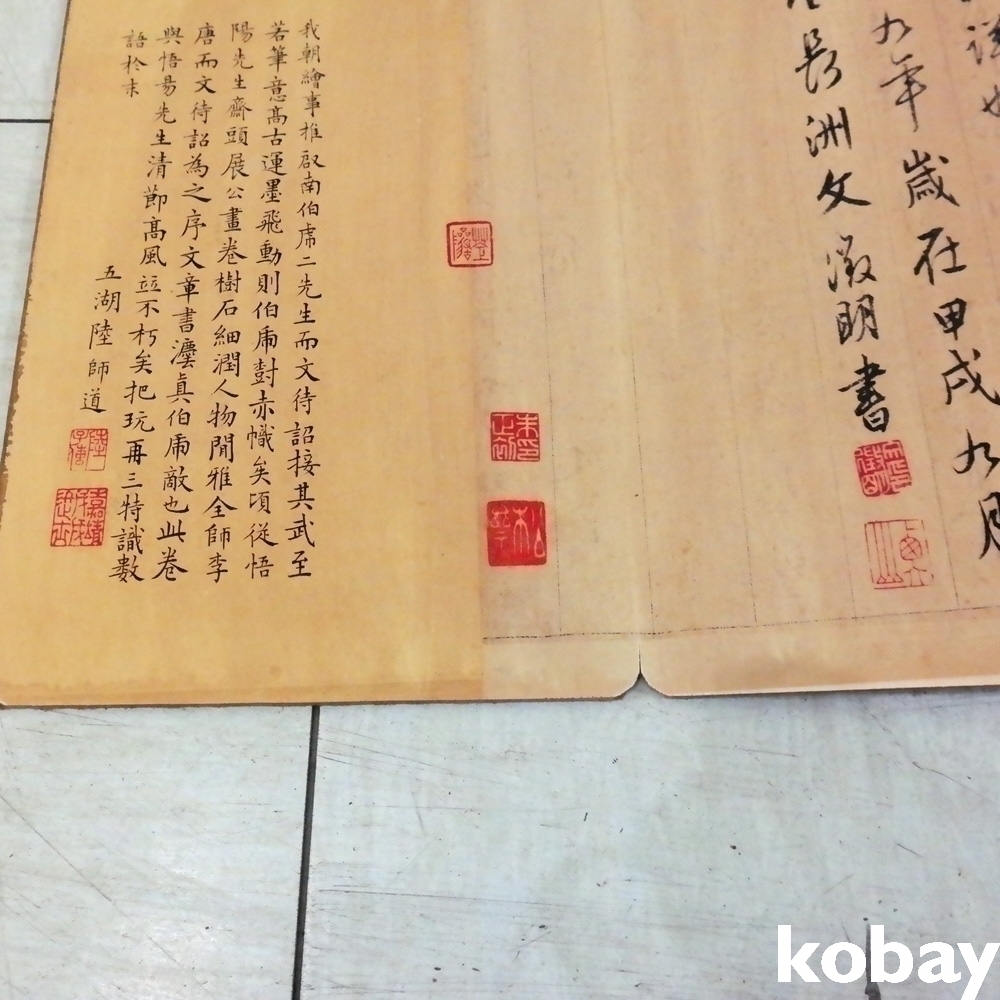 九月
九年歲在甲戌
長洲文徵明書
我朝繪事推啟南伯虎二先生而文待詔接其武至
若筆意高古運墨飛動則伯虎對赤幟矣頃從悟
陽先生齋頭展公畫卷樹石細潤人物閒雅全師李
唐而文待詔為之序文章書瀍真伯虎敵也此卷
與悟昜先生清節高風竝不朽矣把玩再三特識數
語於末
五湖陸師道
kobay